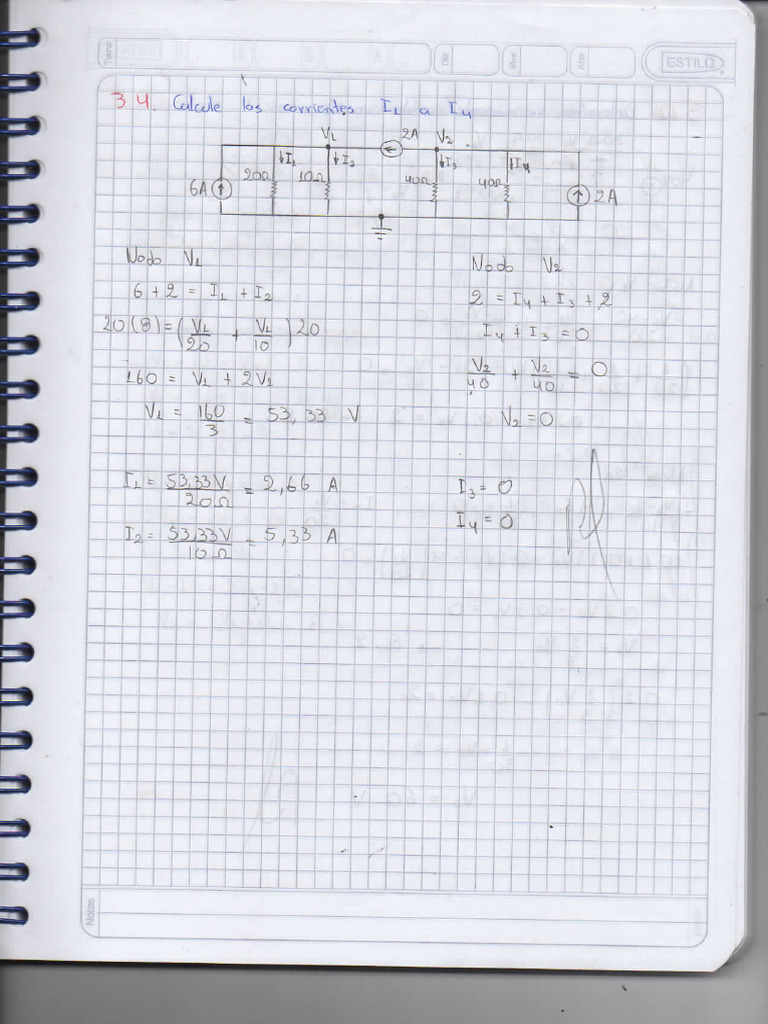 Tema Día Mes Año ESTILO
3.4. Calcule las corrientes I1 a I4
V1 2A V2
I1 I2 I3 I4
6A 20Ω 10Ω 40Ω 40Ω 2A
Nodo V1
6 + 2 = I1 + I2
20(8) = (V1/20 + V1/10) 20
160 = V1 + 2V1
V1 = 160/3 = 53,33 V
I1 = 53,33V/20Ω = 2,66 A
I2 = 53,33V/10Ω = 5,33 A
Nodo V2
2 = I4 + I3 + 2
I4 + I3 = 0
V2/40 + V2/40 = 0
V2 = 0
I3 = 0
I4 = 0
Notas